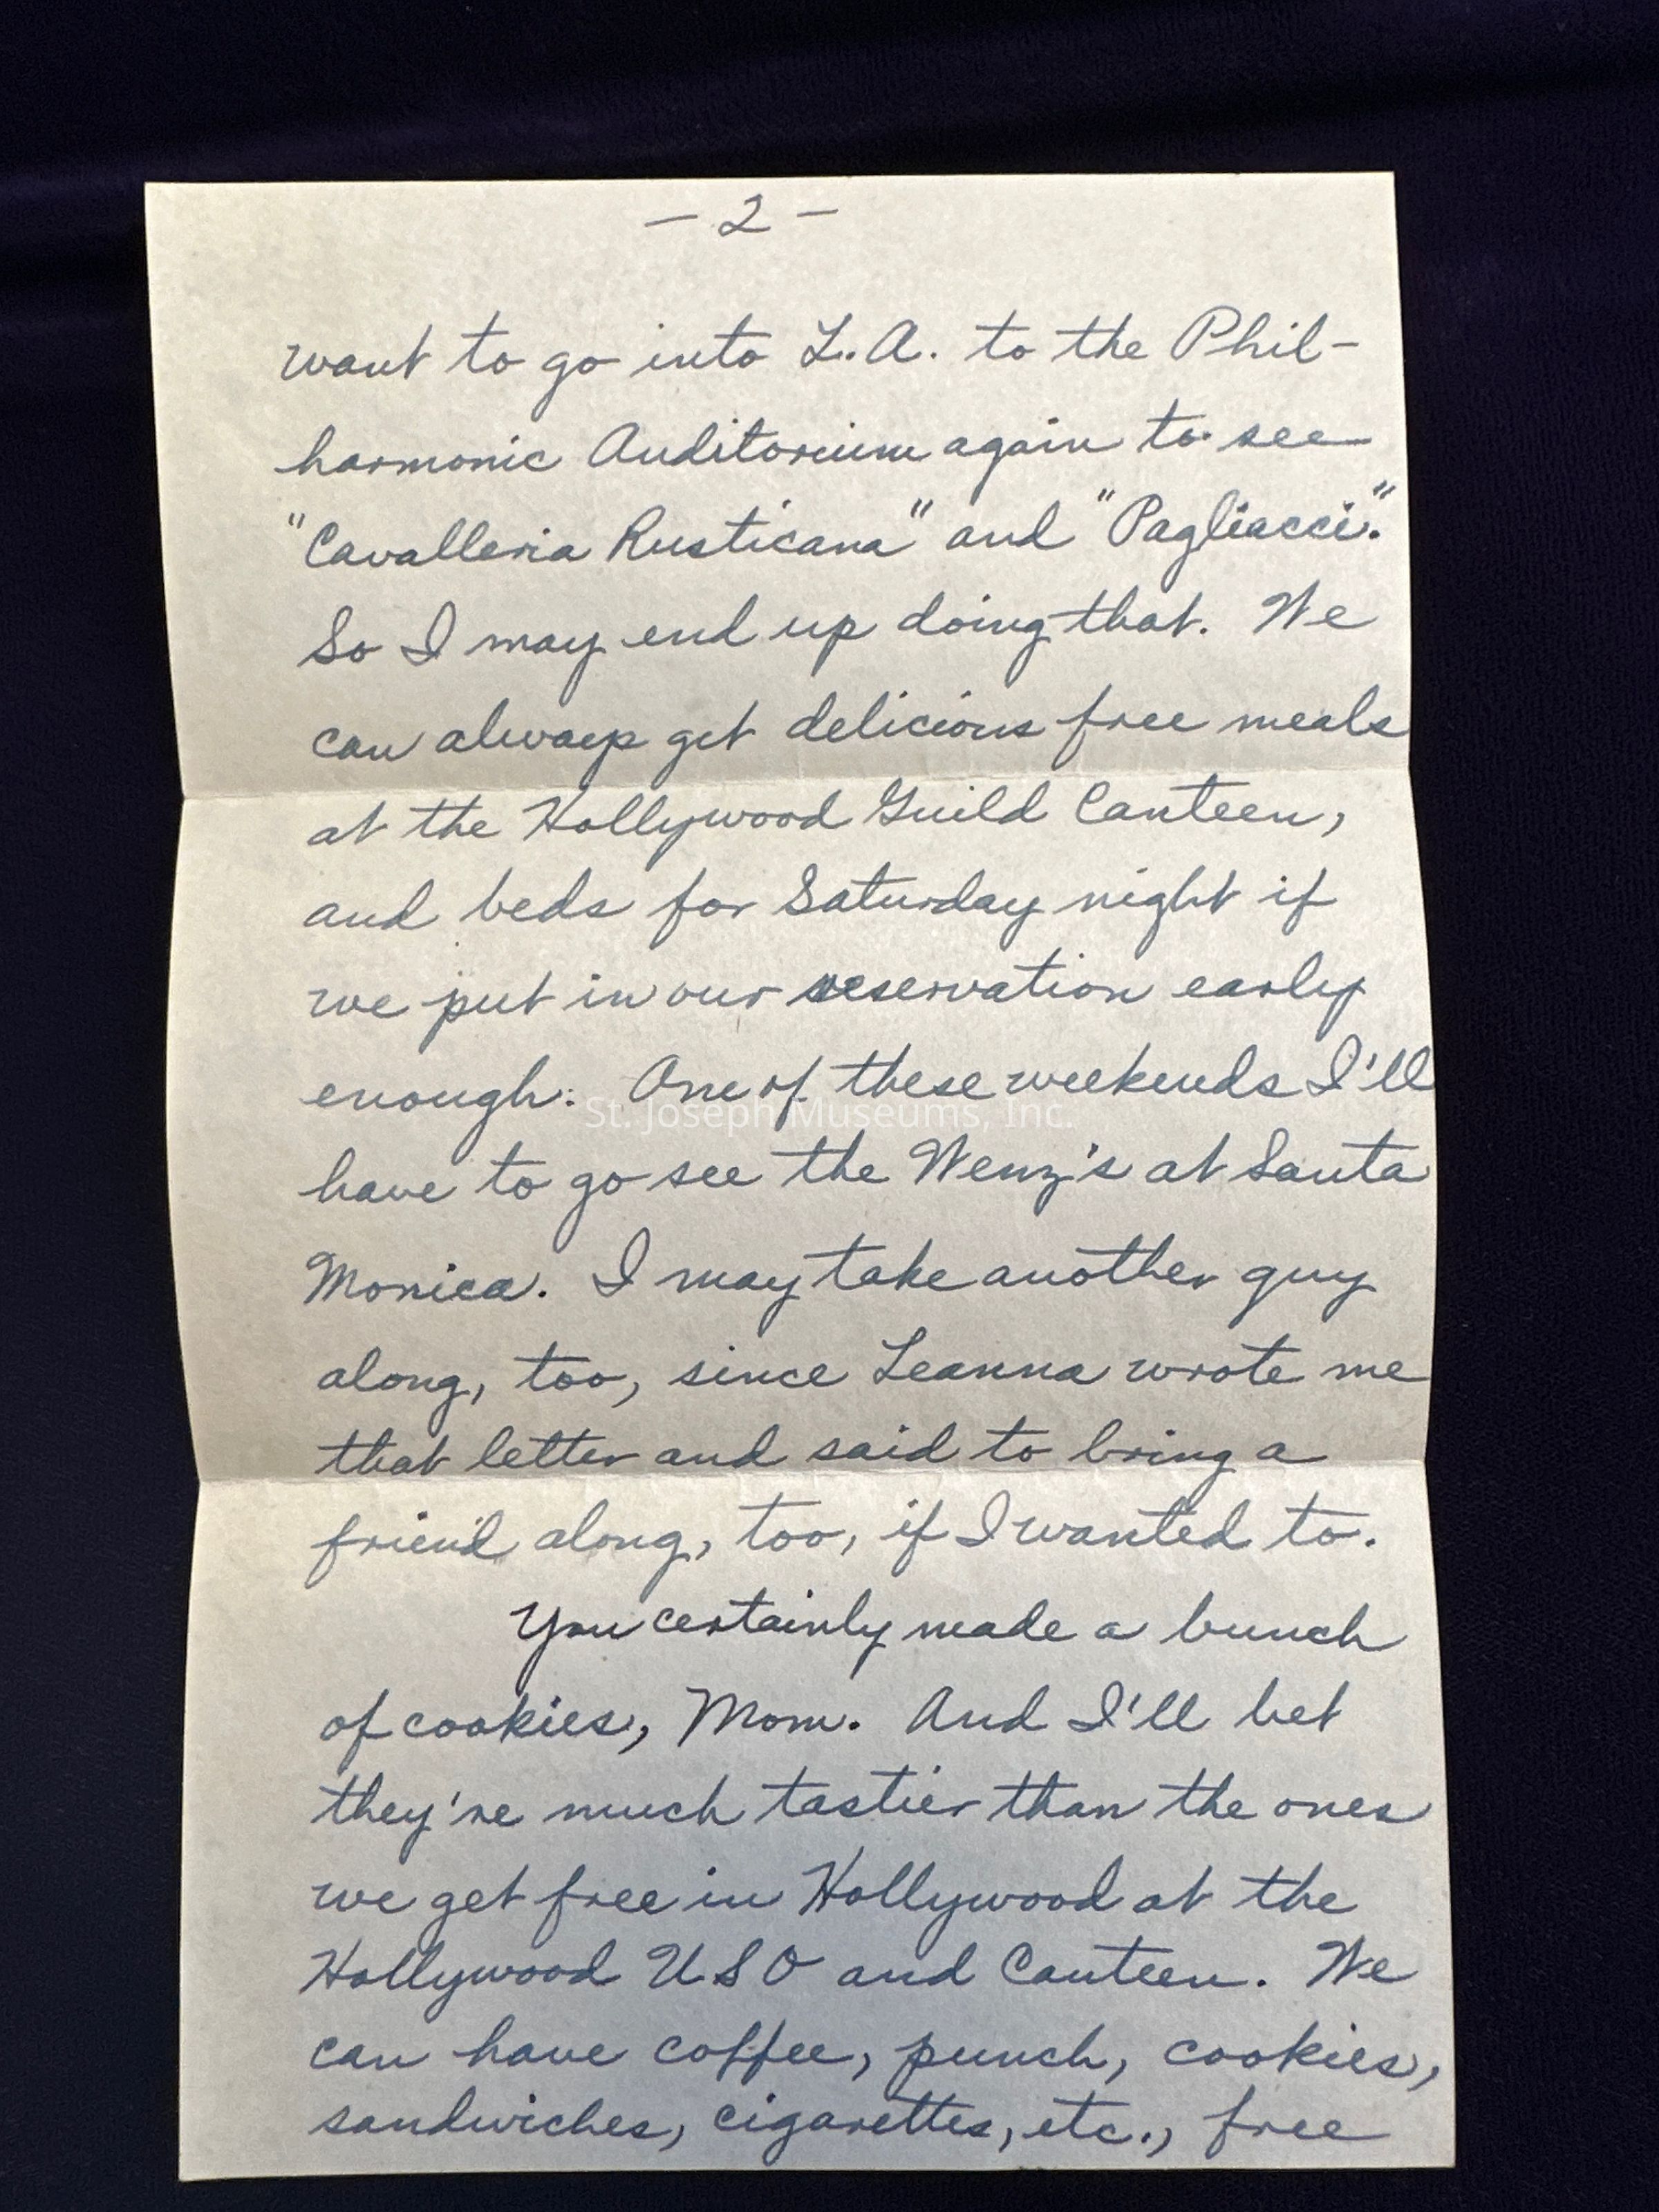 - 2 -
want to go into L.A. to the Phil-
harmonic Auditorium again to see
"Cavalleria Rusticana" and "Pagliacci."
So I may end up doing that. We
can always get delicious free meals
at the Hollywood Guild Canteen,
and beds for Saturday night if
we put in our reservation early
enough. One of these weekends I'll
St. Joseph Museums, Inc.
have to go see the Wenz's at Santa
Monica. I may take another guy
along, too, since Leanna wrote me
that letter and said to bring a
friend along, too, if I wanted to.
You certainly made a bunch
of cookies, Mom. And I'll bet
they're much tastier than the ones
we get free in Hollywood at the
Hollywood USO and Canteen. We
can have coffee, punch, cookies,
sandwiches, cigarettes, etc., free